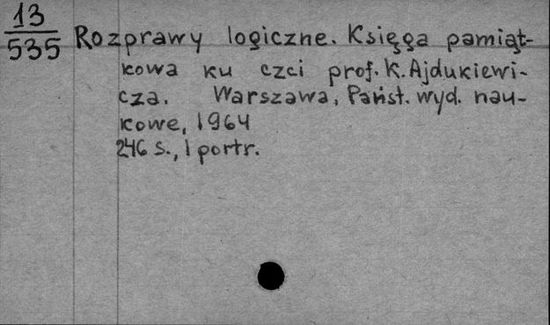 13
535
Rozprawy logiczne. Księga pamiąt-
kowa ku czci prof. K. Ajdukiewi-
cza. Warszawa, Państ. wyd. nau-
kowe, 1964
246 s., 1 portr.